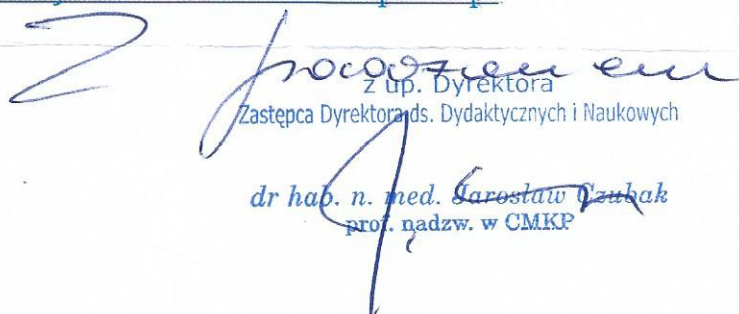 Z poważaniem
z up. Dyrektora
Zastępca Dyrektora ds. Dydaktycznych i Naukowych
dr hab. n. med. Jarosław Czubak
prof. nadzw. w CMKP